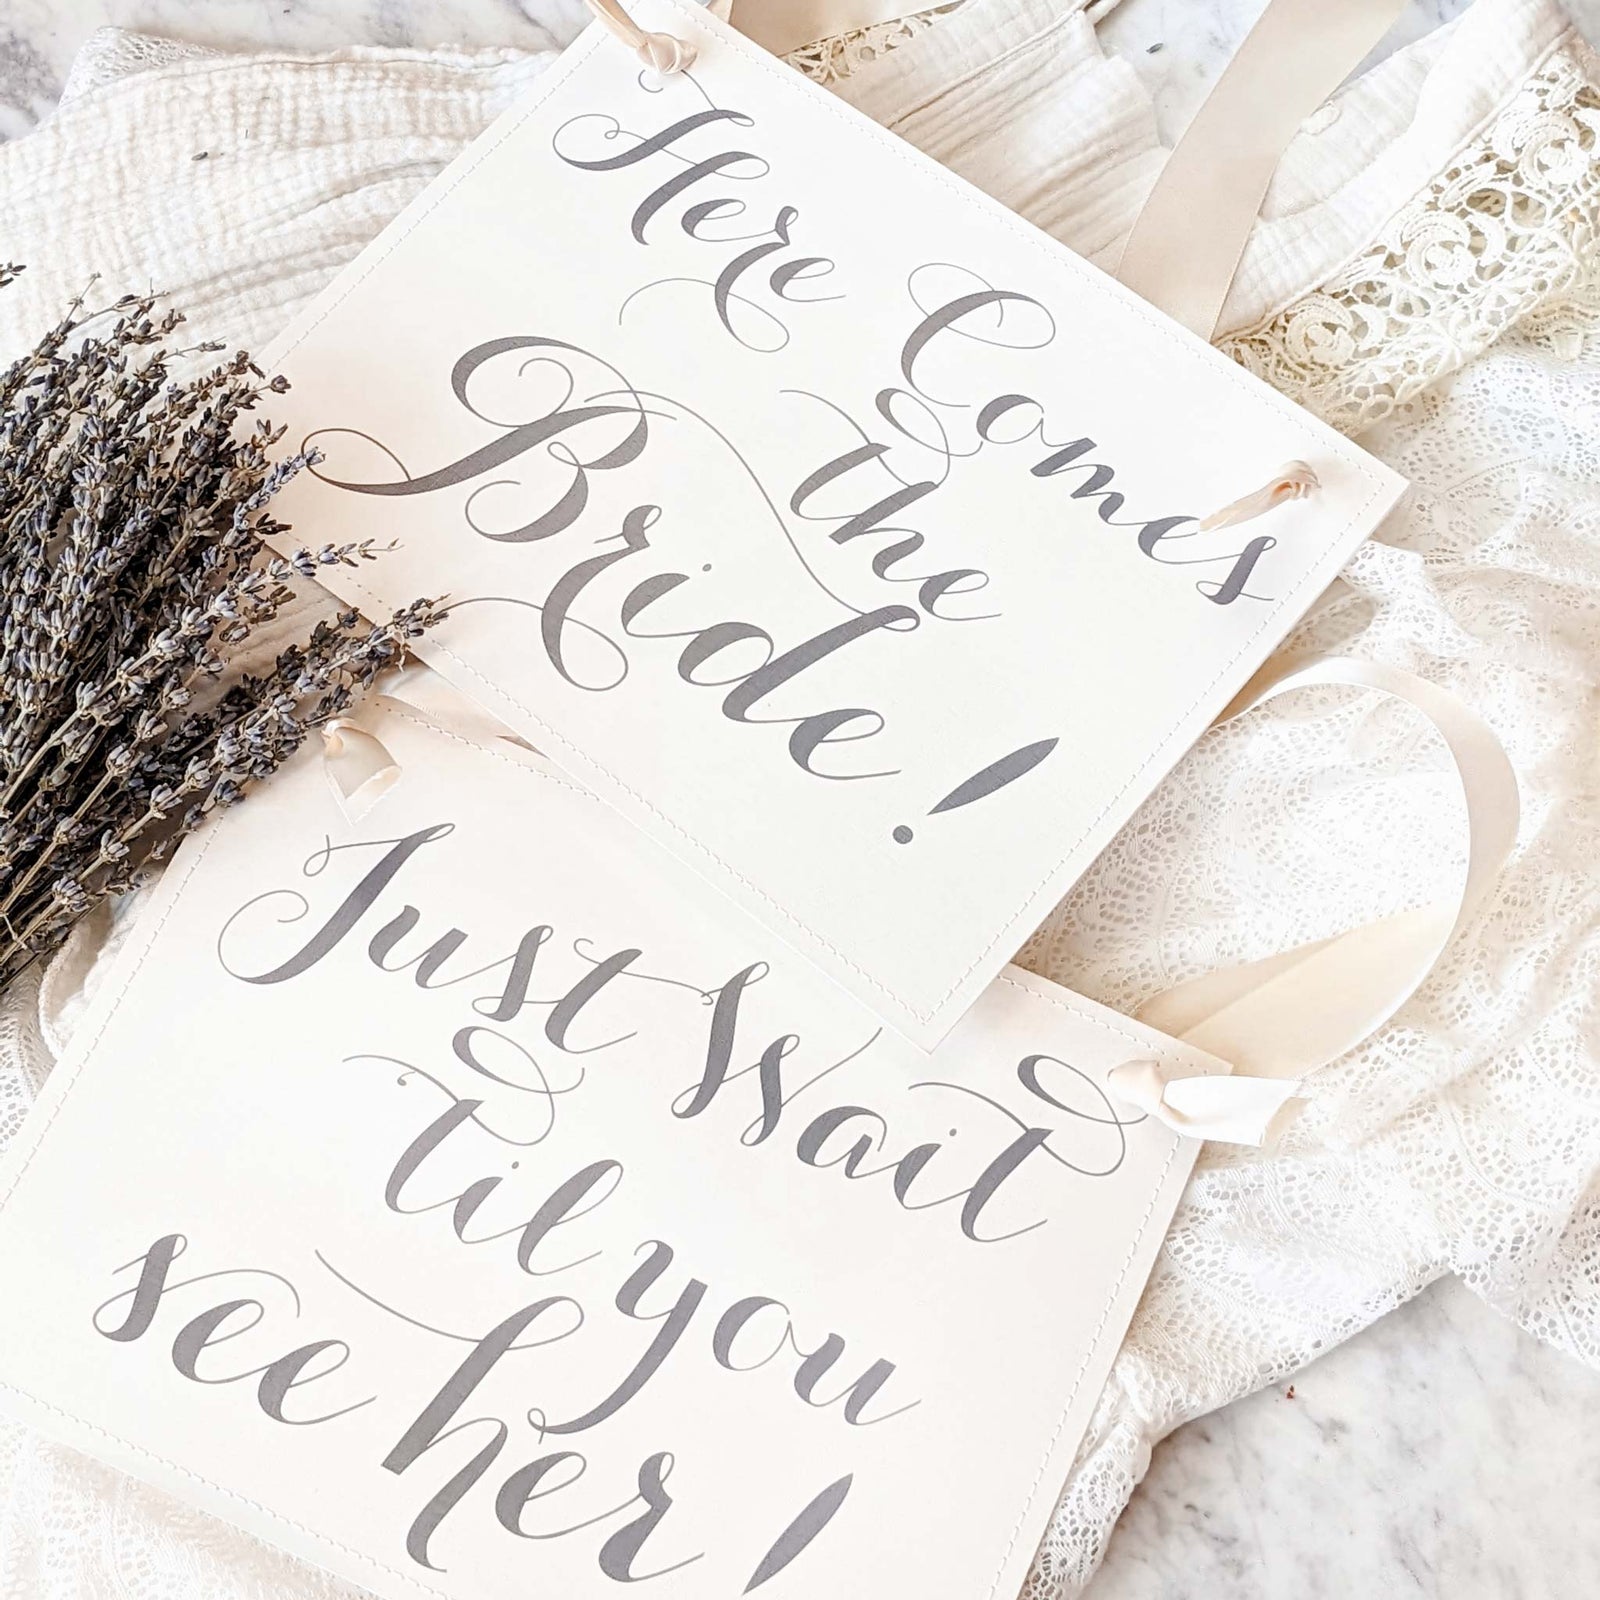 Here Comes
the
Bride!
Just Wait
'til you
see her!